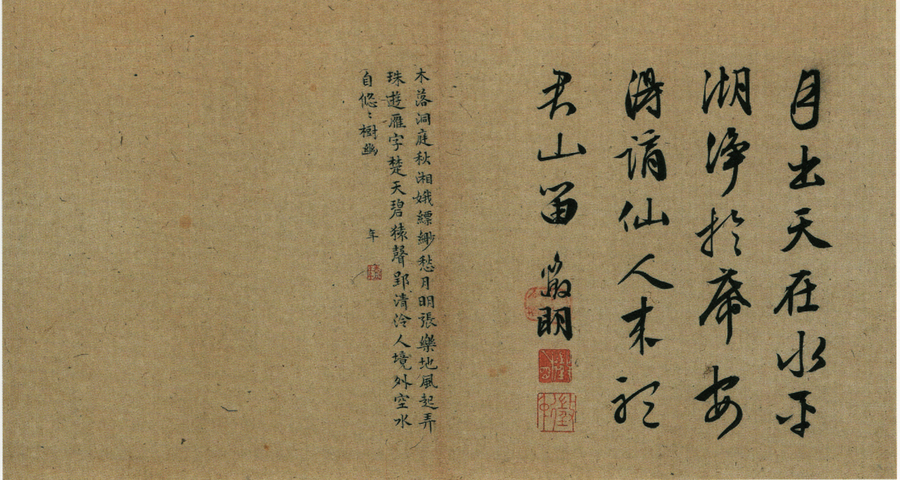 月出天在水平
湖净於席安
得謫仙人来聽
君山笛徵明
木落洞庭秋湘娥縹緲愁月明張樂地風起弄
珠遊雁字楚天碧猿聲郢清泠人境外空水
自悠〻樹幽
年